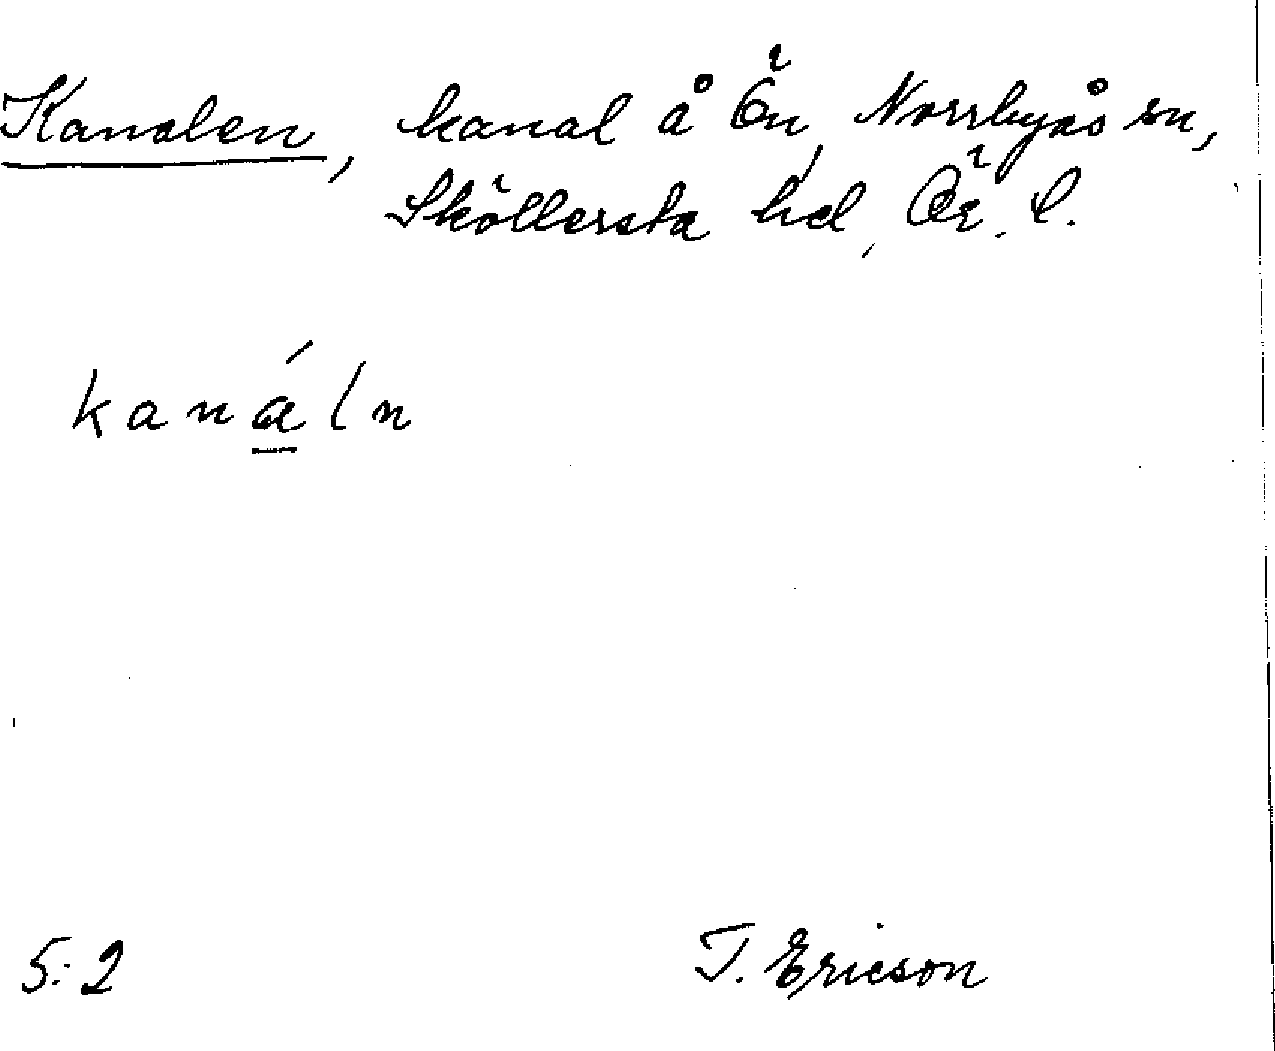 Kanalen, kanal å Ön, Norrbyås sn,
Sköllersta hd, Ör. l.
kanáln
5:2 T. Ericson